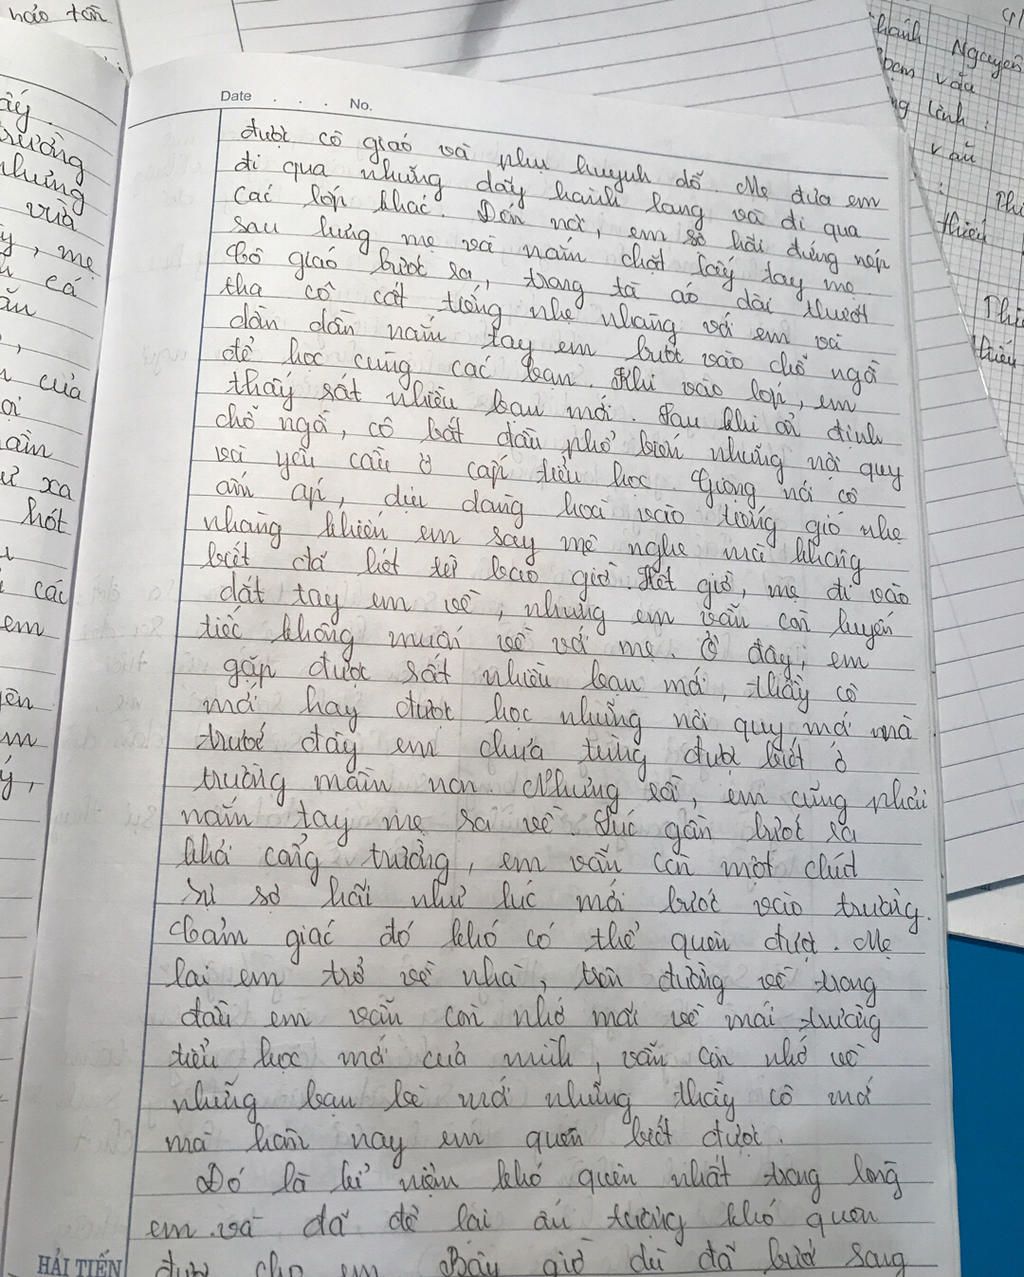 háo tồn
Date . . . No.
được cô giáo và phụ huynh dỗ. Mẹ đưa em
đi qua những dãy hành lang và đi qua
các lớp khác. Đến nơi, em sợ hãi đứng nép
sau lưng mẹ và nắm chặt lấy tay mẹ.
Cô giáo bước ra, trong tà áo dài thướt
tha cô cất tiếng nhẹ nhàng với em và
dần dần nắm tay em bước vào chỗ ngồi
để học cùng các bạn. Khi vào lớp, em
thấy rất nhiều bạn mới. Sau khi ổn định
chỗ ngồi, cô bắt đầu phổ biến những nội quy
và yêu cầu ở cấp tiểu học. Giọng nói cô
ấm áp, dịu dàng hoà vào tiếng gió nhẹ
nhàng khiến em say mê nghe mà không
biết đã hết từ bao giờ. Hết giờ, mẹ đi vào
dắt tay em về, nhưng em vẫn còn luyến
tiếc không muốn về với mẹ. Ở đây, em
gặp được rất nhiều bạn mới, thầy cô
mới hay được học những nội quy mới mà
trước đây em chưa từng được biết ở
trường mầm non. Nhưng rồi, em cũng phải
nắm tay mẹ ra về. Lúc gần bước ra
khỏi cổng trường, em vẫn còn một chút
sự sợ hãi như lúc mới bước vào trường.
Cảm giác đó khó có thể quên được. Mẹ
lai em trở về nhà, trên đường về trong
đầu em vẫn còn nhớ mãi về mái trường
tiểu học mới của mình, vẫn còn nhớ về
những bạn bè mới những thầy cô mới
mà hôm nay em quen biết được.
Đó là kỉ niệm khó quên nhất trong lòng
em và đã để lại ấn tượng khó quên
được cho em. Bây giờ dù đã bước sang
HẢI TIẾN